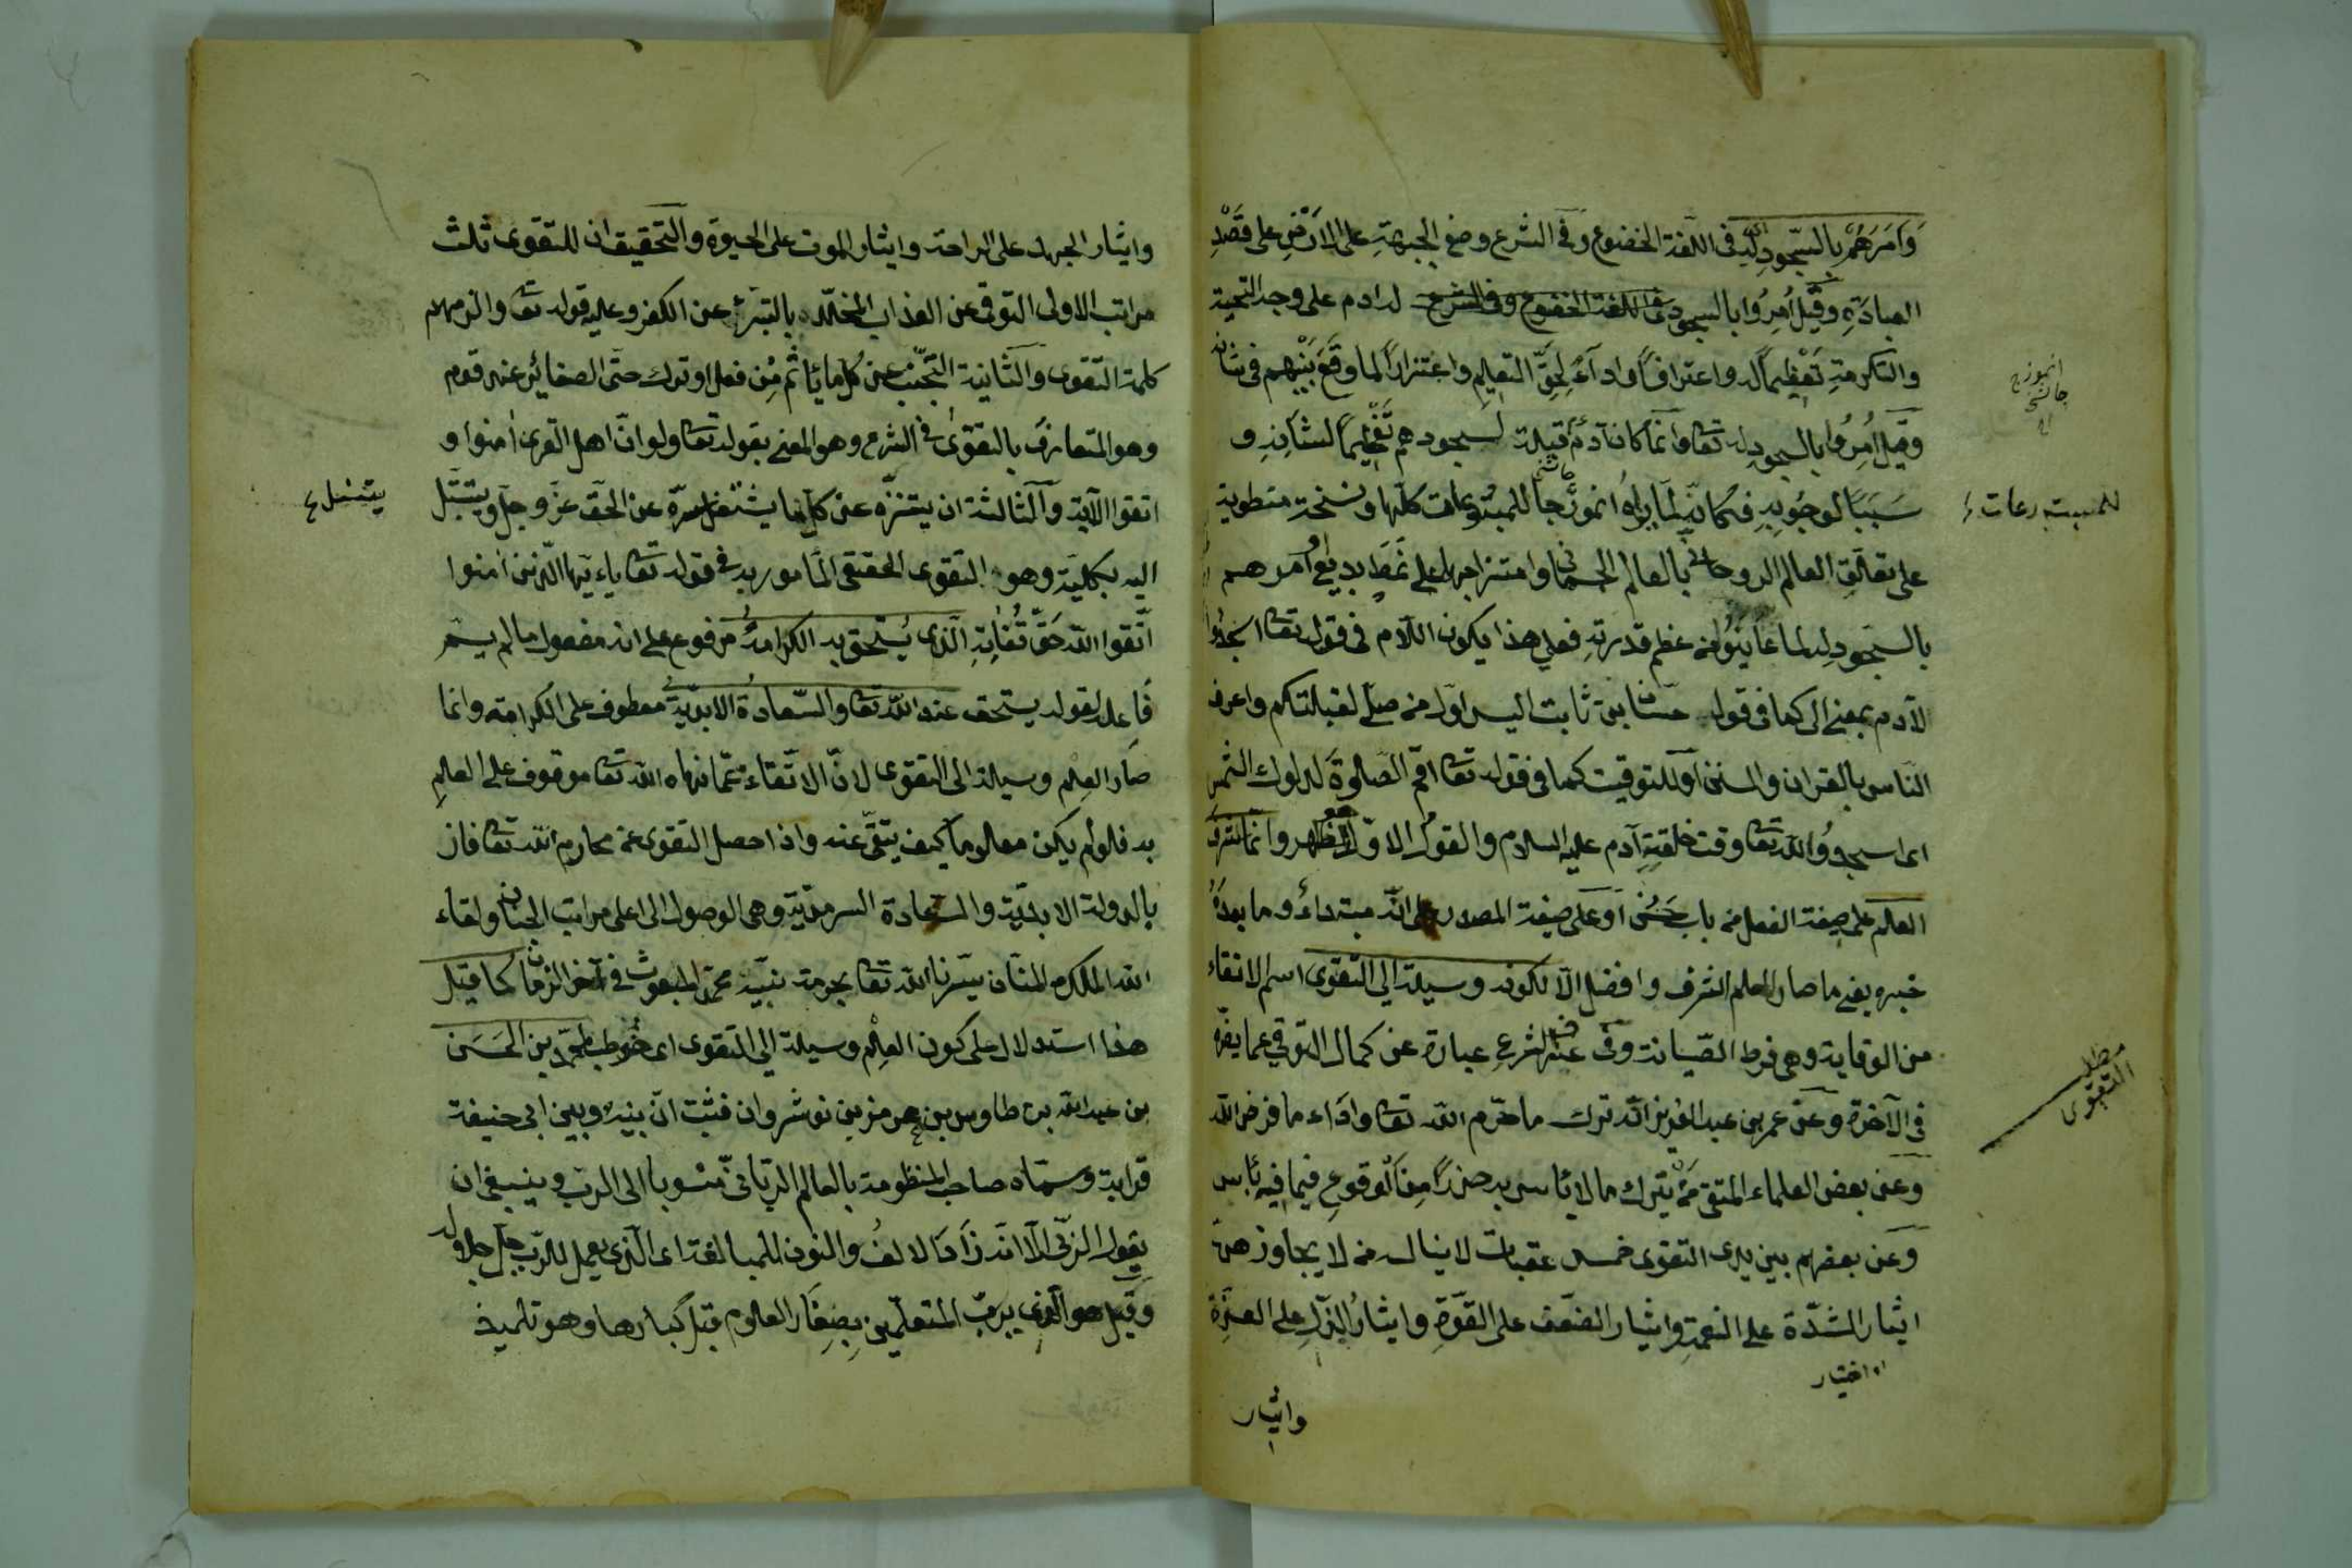 وَاَمَرَهُمْ بالسّجودِ له في اللغة الخضوع وفي الشرع وضع الجبهةِ على الارَضِ على قَصْدِ
العبادَةِ وقيل اُمِرُوا بالسجود في اللغة الخضوع وفي الشرع لادم على وجه التحية
والتكرمةِ تَعْظيماً له واعترافاً واداءً لحِقِّ التعليم واعتذاراً لما وقَعَ بَيْنهم في شانه
وقيل اُمِرُوا بالسجودِ له تعا وانما كان آدمُ قبلة لسجودهم تفخيماً لشانِهِ و
سَبَبًا لوجُوبِهِ فكانه لما براهُ انموذجا للمبدعات كلّها ونسخة منطوية
على تعلقِ العالم الروحاني بالعالم الجسماني وامتزاجهما على نمَطٍ بديع اَمَرهم
بالسجودِ له لما عاينُوا من عظم قدرتهِ فعلى هذا يكون اللام في قوله تعا اسجدوا
لآدم بمعنى الى كما في قول حسّان بن ثابت اليس اول من صلّى لقبلتكم واعرف
الناس بالقران والسنن اَو للتوقيت كما في قوله تعا اقم الصّلوةَ لدلوك الشمس
اى اسجدوُا لله تعا وقت خلقةِ آدم عليه السلام والقول الاوّل اظهر وانّما شرف
العلم على صيغة الفعل من باب حَسُن اَو على صيغة المصدر على انّه مبتداء وما بعدهُ
خبره يعني ما صار العلم اشرف وافضل الّا لكونه وسيلة الى التقوى اسم الاتقاء
من الوقاية وهى فرط الصّيانة وفى عرف الشرع عبارة عن كمال التوقي عما يضرّه
في الآخرة وعن عمر بن عبد العزيز انّه ترك ما حرّم الله تعا واداء ما فرض الله
وَعَن بعض العلماء المتقى مَنْ يترك ما لا بأس به حذراً مِنَ الوقوع فيما فيه بأس
وعَن بعضهم بين يدى التقوى خمس عقبات لا ينال من لا يجاوزهن
ايثار الشدّة على النعمةِ وايثار الضعف على القوّةِ وايثارُ الذلِّ على العزّةِ
اى اختيار
وايثار
انموذج
للمبدعات
مطلب
التقوى
وايثار الجهد على الراحة وايثار الموت على الحيوة والتحقيق ان للتقوى ثلث
مراتب الاولى التوقى عن العذاب المخلّد بالتبرّى عن الكفر وعليه قوله تعا والزمهم
كلمة التقوى والثانية التجنّب عن كل ما يأثم مِن فعل او ترك حتى الصغائر عند قوم
وهو المتعارف بالتقوى في الشرع وهو المعنى بقوله تعا ولو انّ اهل القرى اٰمنوا و
اتقوا الآية والثالثة ان يتنزّه عن كل ما يشغل سرّه عن الحق عزّ وجلّ ويتبتّل
اليه بكليّة وهو التقوى الحقيقى المأمور به في قوله تعا ياءيّها الّذين اٰمنوا
اتّقوا اللّه حَقّ تُقٰاتِهِ الّذى يُستحق به الكرامةُ مرفوع على انه مفعول ما لم يسم
فَاعله لقوله يستحق عند اللّه تعا والسّعادةُ الابديةُ معطوف على الكرامة وانما
صار العِلم وسيلة الى التقوى لانّ الاتّقاء عمّا نهاه اللّه تعا موقوف على العلمِ
به فلو لم يكن معلوما كيف يتقى عنه واذا حصل التقوى عن محارم اللّه تعا فاز
بالدولة الابديّة والسعادة السرمديّة وهى الوصول الى اعلى مراتب الجنان ولقاء
اللّه الملك المنّان يسّرنا اللّه تعا بحرمة نبيّه محمّد المبعوث في آخر الزمان كما قيل
هذا استدلال على كون العِلْم وسيلة الى التقوى اى خُوطب محمّد بن الحَسَن
بن عبد اللّه بن طاوس بن هرمز بن نوشروان فثبت انّ بينه وبين ابى حنيفة
قرابة وسمّاه صاحب المنظومة بالعالم الربّانى منسوبا الى الرب وينبغى ان
يقول الربّى الّا انّه زادَ الالفُ والنون للمبالغة اى الّذى يعمل للرّب جلّ جلاله
وقيل هو الّذى يربّ المتعلّمين بِصِغار العلوم قبل كبارها وهو تلميذ
يشغل